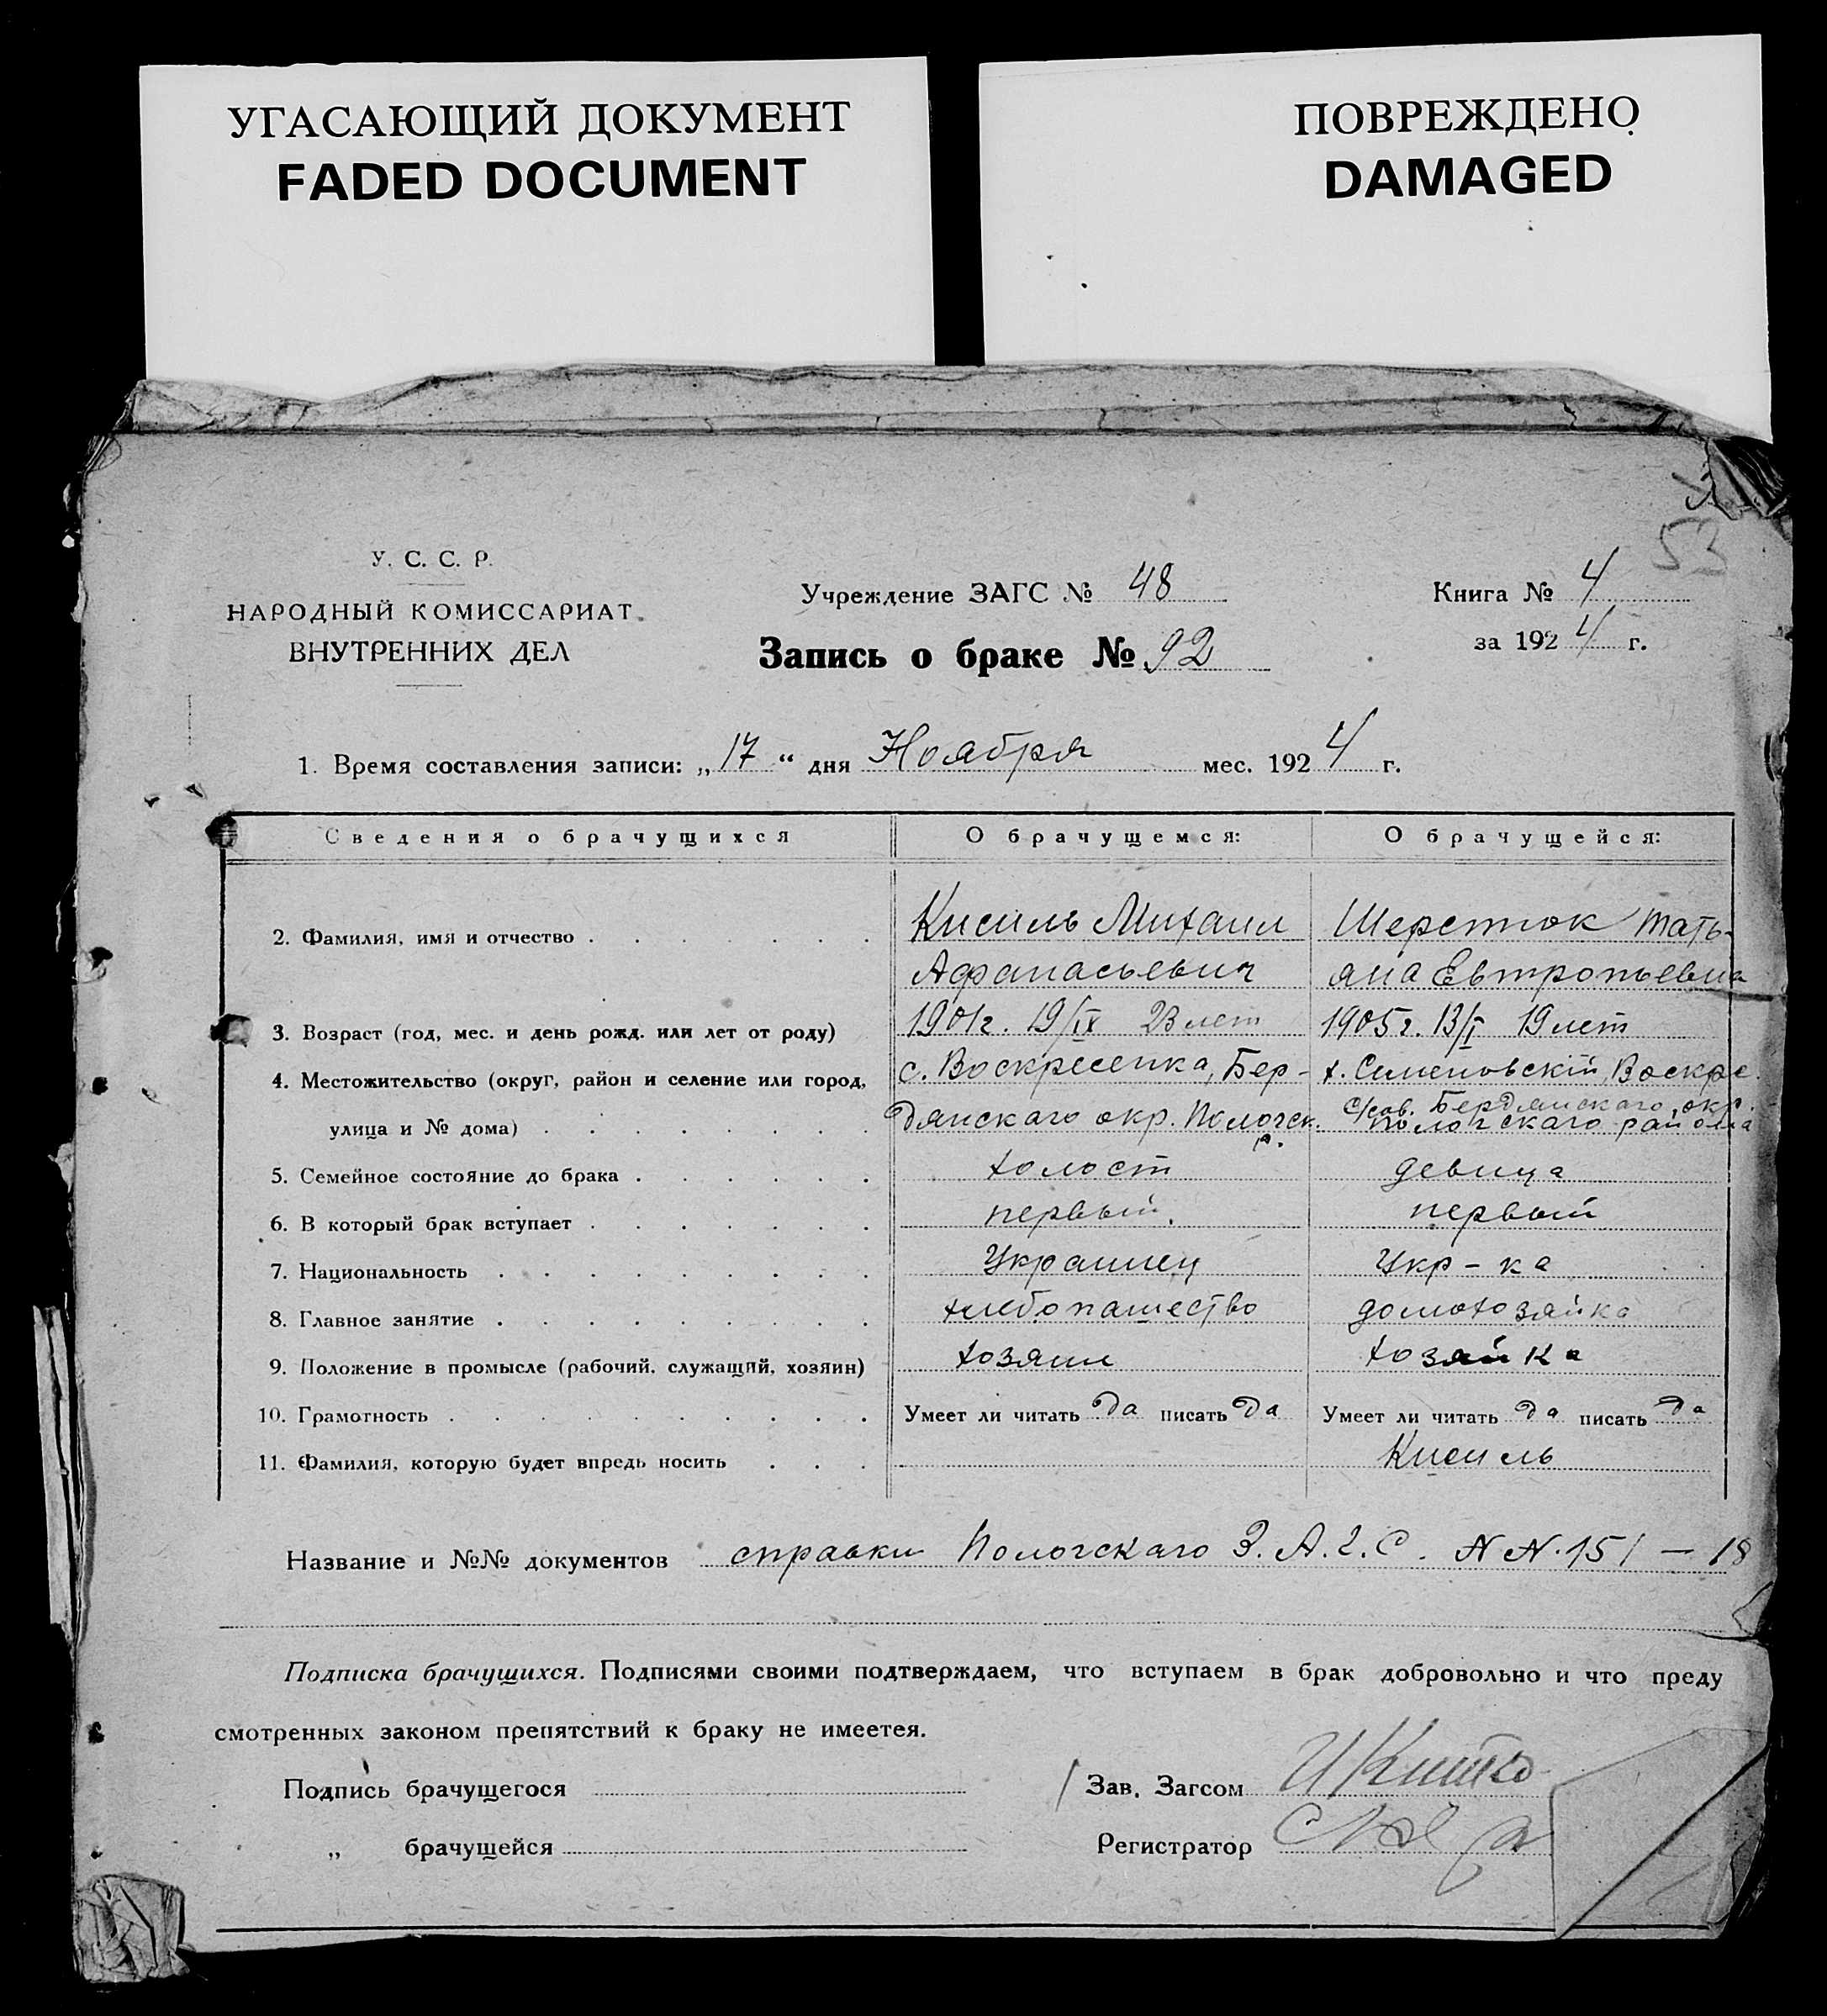 УГАСАЮЩИЙ ДОКУМЕНТ
FADED DOCUMENT
ПОВРЕЖДЕНО
DAMAGED
53
У. С. С. Р.
НАРОДНЫЙ КОМИССАРИАТ
ВНУТРЕННИХ ДЕЛ
Учреждение ЗАГС № 48
Запись о браке № 92
Книга № 4
за 1924 г.
1. Время составления записи: „17“ дня Ноября мес. 1924 г.
Сведения о брачущихся О брачущемся: О брачущейся:
2. Фамилия, имя и отчество Кисиль Михаил Шерстюк Тать-
Афанасьевич яна Евтропьевна
3. Возраст (год, мес. и день рожд. или лет от роду) 1901г. 19/IX 23 лет 1905г. 13/I 19 лет
4. Местожительство (округ, район и селение или город, с. Воскресенка, Бер- х. Семеновскій, Воскре.
улица и № дома) дянскаго окр. Пологск. р. с/сов. Бердянскаго, окр.
Пологскаго района
5. Семейное состояние до брака холост девица
6. В который брак вступает первый. первый
7. Национальность Украинец Укр-ка
8. Главное занятие хлебопашество домохозяйка
9. Положение в промысле (рабочий, служащий, хозяин) хозяин хозяйка
10. Грамотность Умеет ли читать да писать да Умеет ли читать да писать да
11. Фамилия, которую будет впредь носить Кисиль
Название и №№ документов справки Пологскаго З.А.Г.С. №№. 151 — 18
Подписка брачущихся. Подписями своими подтверждаем, что вступаем в брак добровольно и что преду
смотренных законом препятствий к браку не имеетея.
Подпись брачущегося Зав. Загсом
„ брачущейся Регистратор